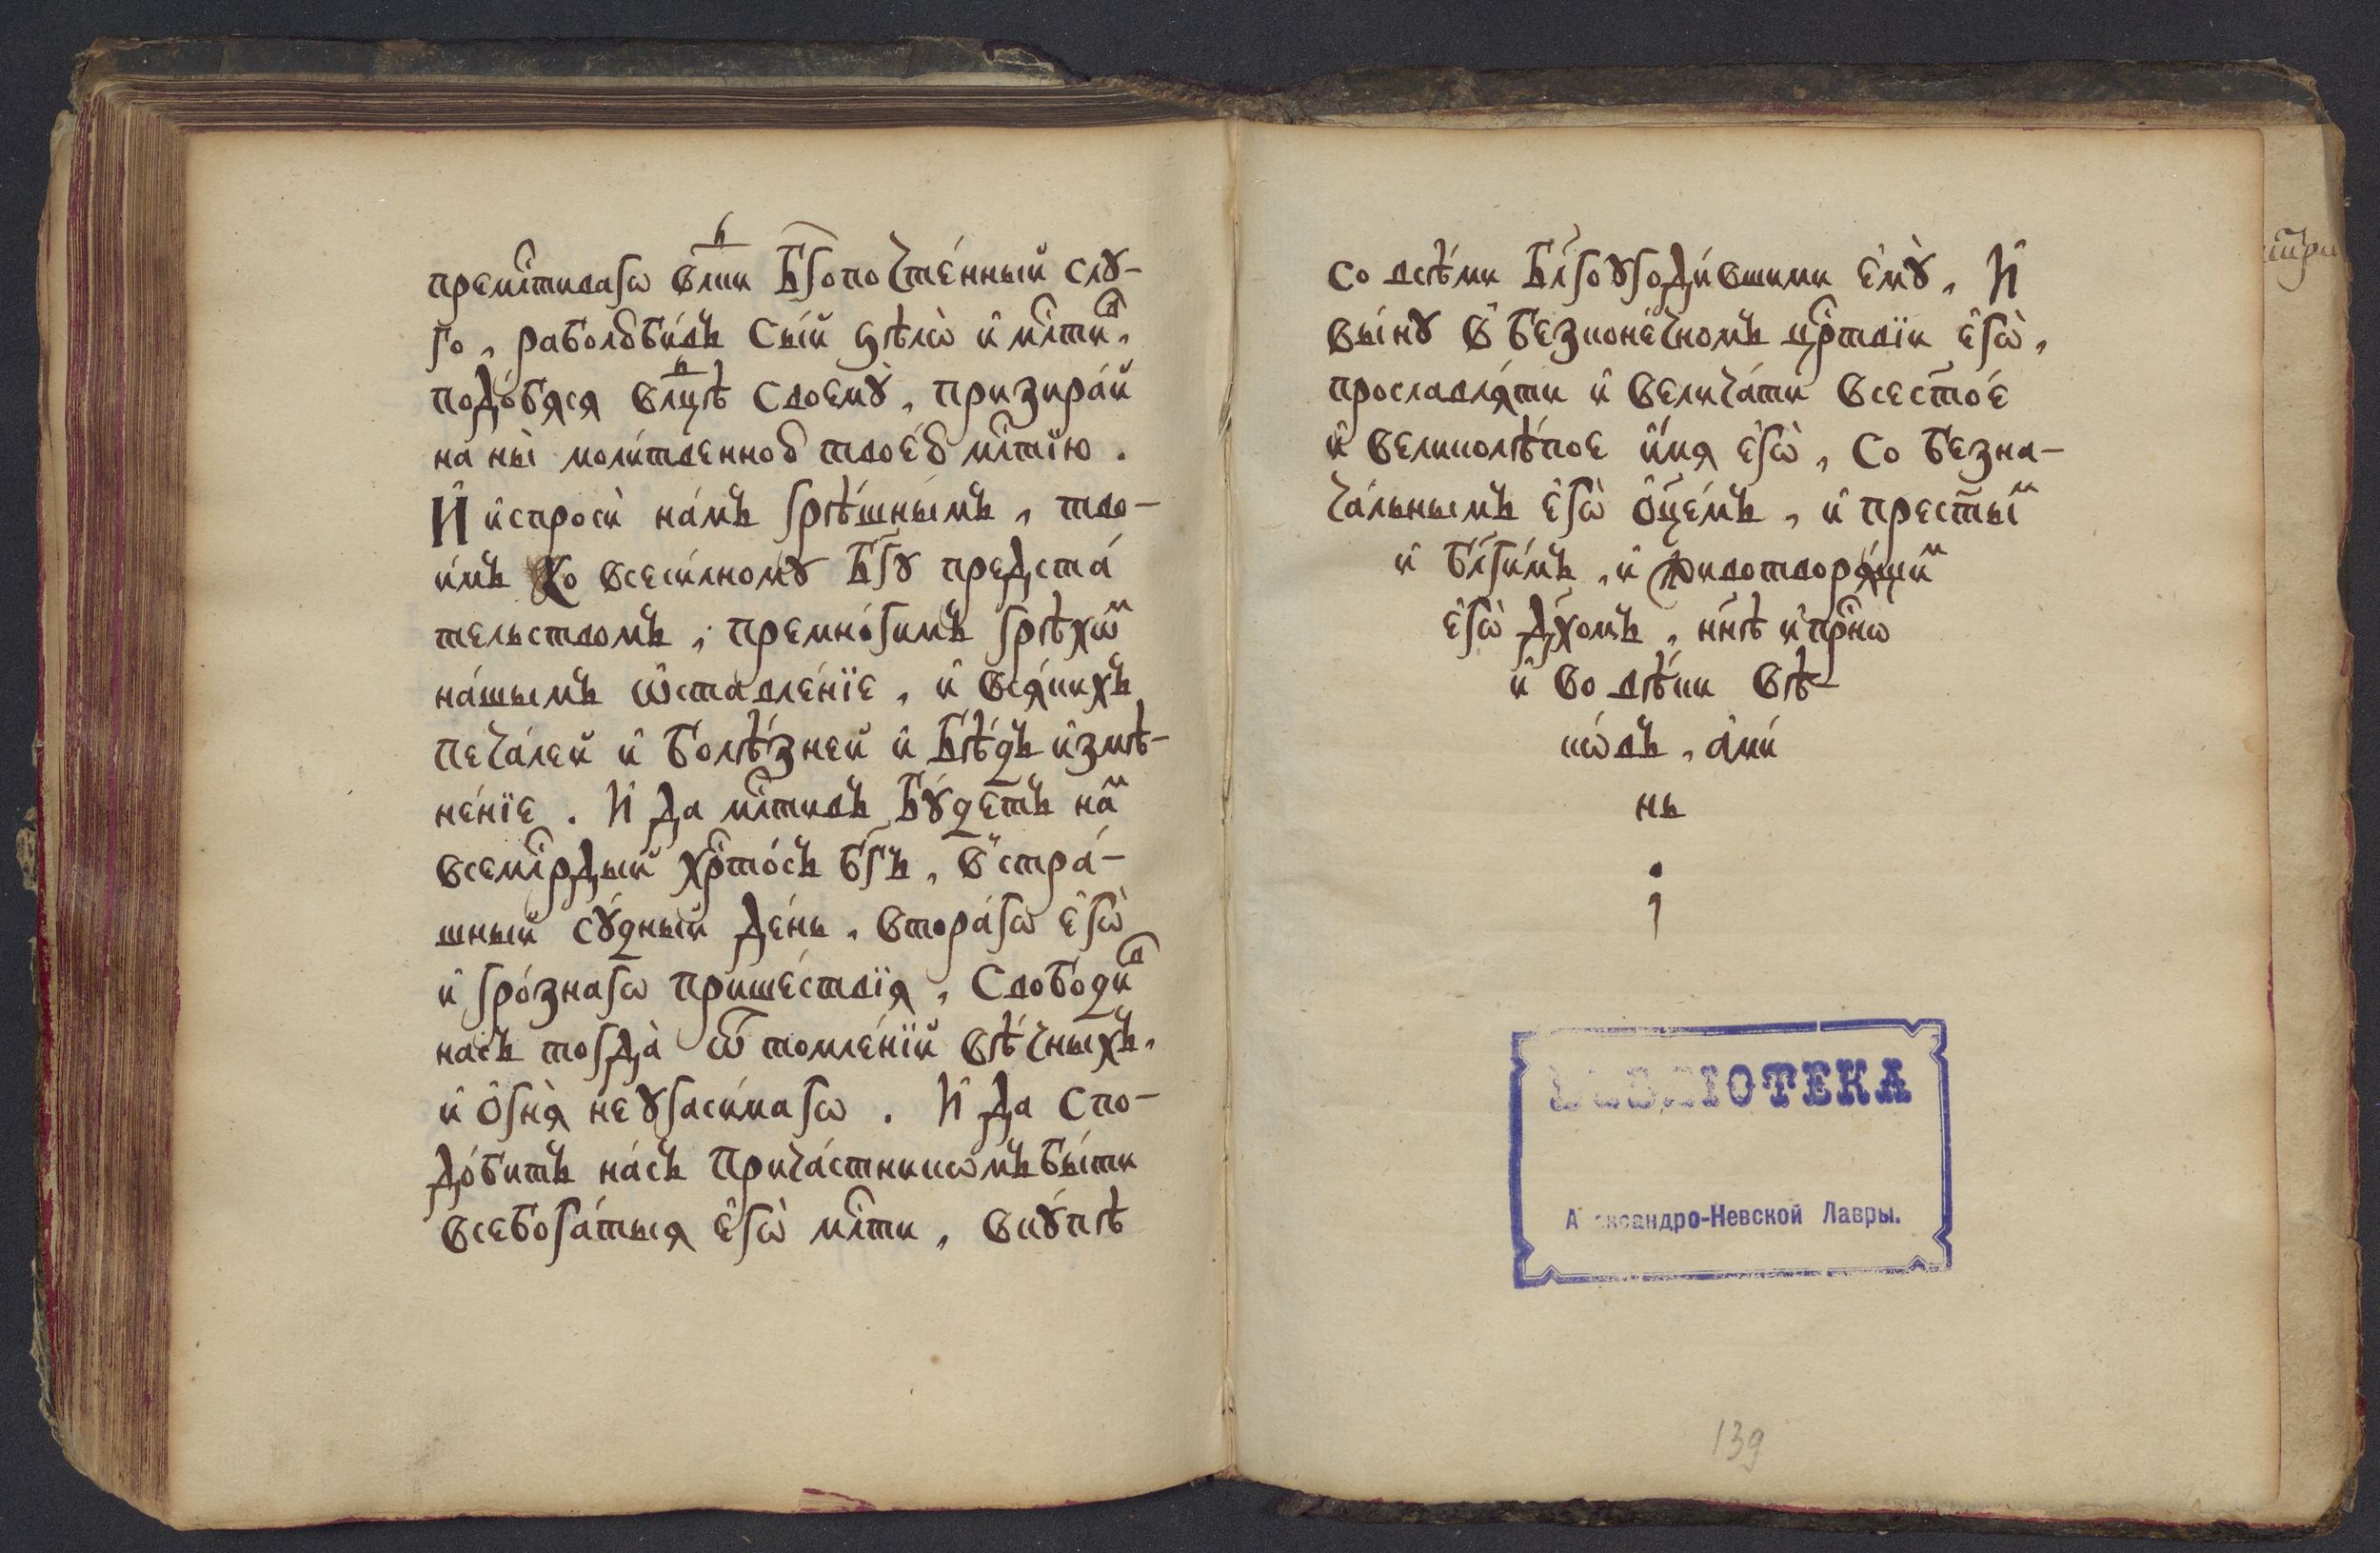 премⷭ҇тиваго вⷧ҇ки бг҃опочте́нный слꙋ-
го, раболюби́въ сы́й ѕѣлѡ̀ и҆ млⷭ҇тиⷡ,
подо́бѧсѧ влⷣцѣ своемꙋ̀, призира́й
на ны̀ моли́твенною твое́ю млⷭ҇тїю.
И҆ и҆спросѝ на́мъ грѣ́шнымъ, тво-
и́мъ ко всеси́лномꙋ бг҃ꙋ предста́
тельствомъ, премнѡ́гимъ грѣхѡⷨ
на́шымъ ѡ҆ставле́нїе, и҆ всѧ́кихъ
печа́лей и҆ болѣ́зней и҆ бѣ́дъ и҆змѣ-
не́нїе. И҆ да млⷭ҇тивъ бꙋ́детъ наⷨ
всемⷧ҇рдый хрⷭ҇то́съ бг҃ъ, в̾ стра́-
шный сꙋ́дный де́нь, втора́гѡ є҆гѡ̀
и҆ гро́знагѡ прише́ствїѧ, свободиⷡ
насъ тогда̀ ѿ томле́нїй вѣ́чныхъ,
и҆ ѻ҆гнѧ̀ не ꙋгаси́магѡ. И҆ да спо-
до́битъ на́съ прича́стникѡмъ бы́ти
всебога́тыѧ є҆гѡ̀ млⷭ҇ти, вкꙋ́пѣ
со всѣ́ми бл҃гоꙋгоди́вшими є҆мꙋ̀, И҆
вы́нꙋ в̾ безконе́чномъ црⷭ҇твїи є҆гѡ̀,
прославлѧ́ти и҆ велича́ти всест҃о́е
и҆ великолѣ́пое и҆́мѧ є҆гѡ̀, со безна-
ча́льнымъ є҆гѡ̀ ѻ҆ц҃е́мъ, и҆ прест҃ы́ⷨ
и҆ бл҃ги́мъ, и҆ животворѧ́щиⷨ
є҆гѡ̀ дх҃омъ, нн҃ѣ и҆ прⷭ҇нѡ
и҆ во вѣ́ки вѣ-
кѡ́въ, а҆ми́
нь
БИБЛІОТЕКА
Александро-Невской Лавры.
139